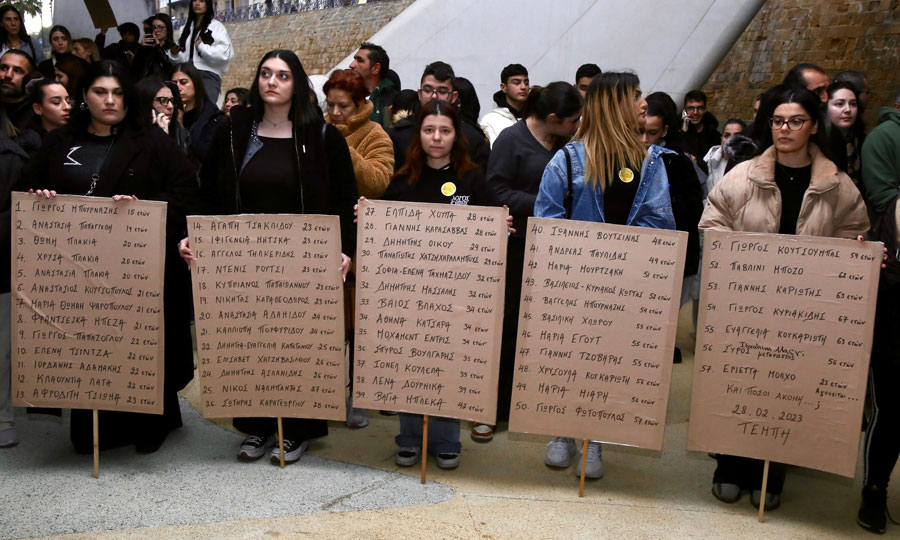 1. ΓΙΩΡΓΟΣ ΜΠΟΥΡΝΑΖΗΣ 15 ετών
2. ΑΝΑΣΤΑΣΙΑ ΠΑΠΑΓΓΕΛΗ 19 ετών
3. ΘΩΜΗ ΠΛΑΚΙΑ 20 ετών
4. ΧΡΥΣΑ ΠΛΑΚΙΑ 20 ετών
5. ΑΝΑΣΤΑΣΙΑ ΠΛΑΚΙΑ 20 ετών
6. ΑΝΑΣΤΑΣΙΟΣ ΚΟΥΤΣΟΠΟΥΛΟΣ 21 ετών
7. ΜΑΡΙΑ ΘΩΜΑΗ ΨΑΡΟΠΟΥΛΟΥ 21 ετών
8. ΦΡΑΝΤΣΕΣΚΑ ΜΠΕΖΑ 21 ετών
9. ΓΙΩΡΓΟΣ ΠΑΠΑΖΟΓΛΟΥ 22 ετών
10. ΕΛΕΝΗ ΤΣΙΝΤΖΑ 22 ετών
11. ΙΟΡΔΑΝΗΣ ΑΔΑΜΑΚΗΣ 22 ετών
12. ΚΛΑΟΥΝΤΙΑ ΛΑΤΑ 22 ετών
13. ΑΦΡΟΔΙΤΗ ΤΣΙΩΜΑ 23 ετών
14. ΑΓΑΠΗ ΤΣΑΚΛΙΔΟΥ 23 ετών
15. ΙΦΙΓΕΝΕΙΑ ΜΗΤΣΚΑ 23 ετών
16. ΑΓΓΕΛΟΣ ΤΗΛΚΕΡΙΔΗΣ 23 ετών
17. ΝΤΕΝΙΣ ΡΟΥΤΣΙ 23 ετών
18. ΚΥΠΡΙΑΝΟΣ ΠΑΠΑΪΩΑΝΝΟΥ 23 ετών
19. ΝΙΚΗΤΑΣ ΚΑΡΑΘΕΟΔΩΡΟΣ 23 ετών
20. ΑΝΑΣΤΑΣΙΑ ΑΔΑΜΙΔΟΥ 24 ετών
21. ΚΑΛΛΙΟΠΗ ΠΟΡΦΥΡΙΔΟΥ 24 ετών
22. ΔΗΜΗΤΡΑ-ΕΥΑΓΓΕΛΙΑ ΚΑΠΕΤΑΝΙΟΥ 25 ετών
23. ΕΛΙΣΑΒΕΤ ΧΑΤΖΗΒΑΣΙΛΕΙΟΥ 26 ετών
24. ΔΗΜΗΤΡΗΣ ΑΣΛΑΝΙΔΗΣ 26 ετών
25. ΝΙΚΟΣ ΝΑΛΜΠΑΝΤΗΣ 27 ετών
26. ΣΩΤΗΡΗΣ ΚΑΡΑΓΕΩΡΓΙΟΥ 28 ετών
27. ΕΛΠΙΔΑ ΧΟΥΠΑ 28 ετών
28. ΓΙΑΝΝΗΣ ΚΑΡΑΣΑΒΒΑΣ 28 ετών
29. ΔΗΜΗΤΡΗΣ ΟΙΚΟΥ 29 ετών
30. ΠΑΝΑΓΙΩΤΗΣ ΧΑΤΖΗΧΑΡΑΛΑΜΠΟΥΣ 29 ετών
31. ΣΟΦΙΑ-ΕΛΕΝΗ ΤΑΧΜΑΖΙΔΟΥ 32 ετών
32. ΔΗΜΗΤΡΗΣ ΜΑΣΣΑΛΗΣ 32 ετών
33. ΒΑΪΟΣ ΒΛΑΧΟΣ 34 ετών
34. ΑΘΗΝΑ ΚΑΤΣΑΡΑ 34 ετών
35. ΜΟΧΑΜΕΝΤ ΕΝΤΡΙΣ 34 ετών
36. ΣΠΥΡΟΣ ΒΟΥΛΓΑΡΗΣ 35 ετών
37. ΙΟΝΕΛ ΚΟΥΛΕΛΑ 39 ετών
38. ΛΕΝΑ ΔΟΥΡΜΙΚΑ 39 ετών
39. ΒΑΓΙΑ ΜΠΛΕΚΑ 42 ετών
40. ΙΩΑΝΝΗΣ ΒΟΥΤΣΙΝΑΣ 48 ετών
41. ΑΝΔΡΕΑΣ ΠΑΥΛΙΔΗΣ 49 ετών
42. ΜΑΡΙΑ ΜΟΥΡΤΖΑΚΗ 51 ετών
43. ΒΑΣΙΛΕΙΟΣ-ΚΥΡΙΑΚΟΣ ΚΩΡΤΑΣ 52 ετών
44. ΒΑΓΓΕΛΗΣ ΜΠΟΥΡΝΑΖΗΣ 54 ετών
45. ΒΑΣΙΛΙΚΗ ΧΛΩΡΟΥ 55 ετών
46. ΜΑΡΙΑ ΕΓΟΥΤ 55 ετών
47. ΓΙΑΝΝΗΣ ΤΖΟΒΑΡΑΣ 55 ετών
48. ΧΡΥΣΟΥΛΑ ΚΟΥΚΑΡΙΩΤΗ 55 ετών
49. ΜΑΡΙΑ ΜΙΑΡΗ 56 ετών
50. ΓΙΩΡΓΟΣ ΦΩΤΟΠΟΥΛΟΣ 57 ετών
51. ΓΙΩΡΓΟΣ ΚΟΥΤΣΟΥΜΠΑΣ 59 ετών
52. ΠΑΒΛΙΝΙ ΜΠΟΖΟ 62 ετών
53. ΓΙΑΝΝΗΣ ΚΑΡΙΩΤΗΣ 63 ετών
54. ΓΙΩΡΓΟΣ ΚΥΡΙΑΚΙΔΗΣ 67 ετών
55 ΕΥΑΓΓΕΛΙΑ ΚΟΥΚΑΡΙΩΤΗ 63 ετών
56 ΣΥΡΟΣ μετανάστης 56 ετών
57. ΕΡΙΕΤΤΑ ΜΟΛΧΟ 23 ετών
ΚΑΙ ΠΟΣΟΙ ΑΚΟΜΗ...;
28.02.2023
ΤΕΜΠΗ